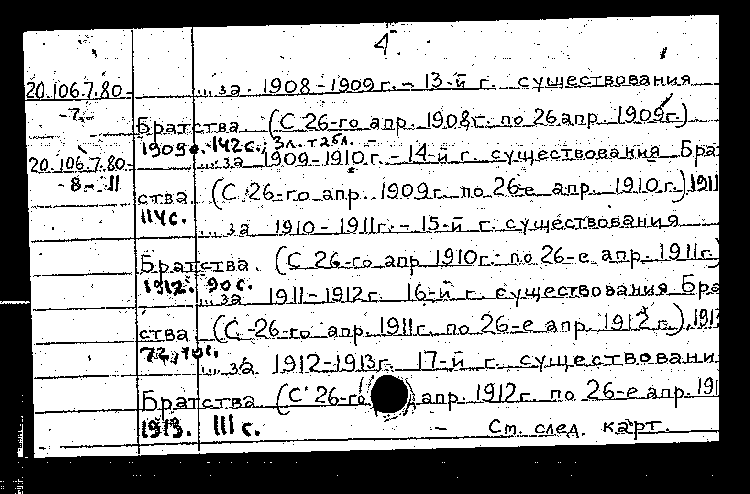 4.
20.106.7.80- ...за 1908-1909г. - 13-й г. существования
-7.- Братства. (С 26-го апр. 1908г. по 26 апр. 1909г.)
1909. 142с., 3л. табл. -
20.106.7.80- ...за 1909-1910г. - 14-й г. существования Бра
-8-.11 ства. (С 26-го апр. 1909г. по 26-е апр. 1910г.) 1911
114с. ...за 1910-1911г. - 15-й г. существования
Братства. (С 26-го апр 1910г. по 26-е апр. 1911г.)
1912. 90с.
...за 1911-1912г. 16-й г. существования Бра
ства (С 26-го апр. 1911г. по 26-е апр. 1912г.),191
...за 1912-1913г. 17-й г. существовани
Братства (С 26-го апр. 1912г. по 26-е апр. 191
1913. 111с. - См. след. карт.